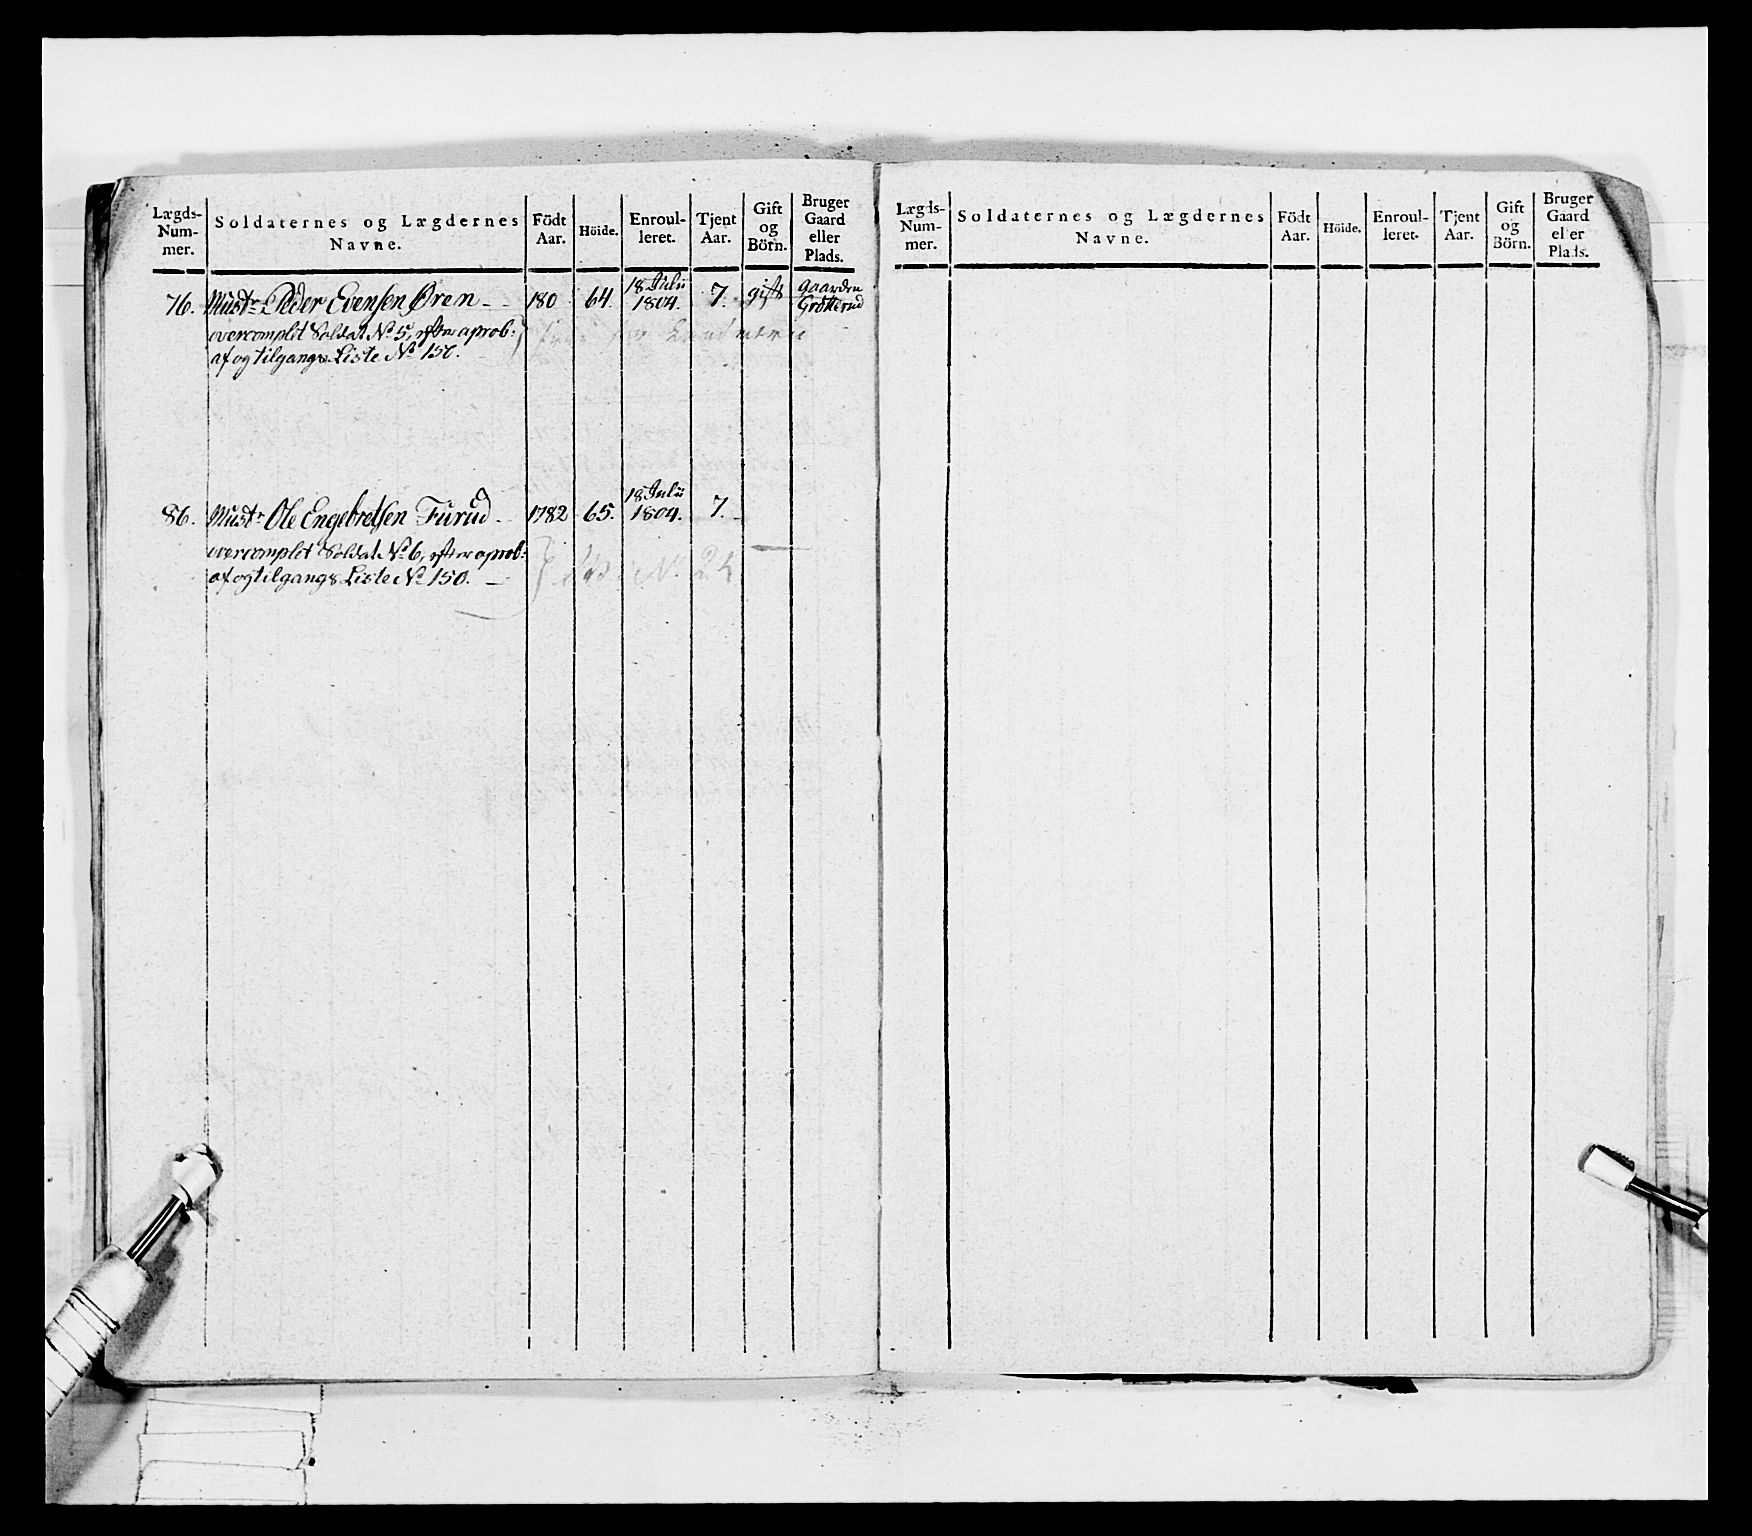 Lægds-Num-mer. Soldaternes og Lægdernes Navne. Födt Aar. Höide. Enroul-leret. Tjent Aar. Gift og Börn. Bruger Gaard eller Plads.
76. Must. Peder Evensen Øren - 180 64. 18 Julii 1804. 7. gift gaarden Grøtterud
overcomplet Soldat No 5, efter aprob:
af og tilgangs Liste No 150.
86. Must. Ole Engebretsen Furud - 1782 65. 18 Julii 1804. 7.
overcomplet Soldat No 6, efter aprob:
af og tilgangs Liste No 150. No 24
Lægds-Num-mer. Soldaternes og Lægdernes Navne. Födt Aar. Höide. Enroul-leret. Tjent Aar. Gift og Börn. Bruger Gaard eller Plads.